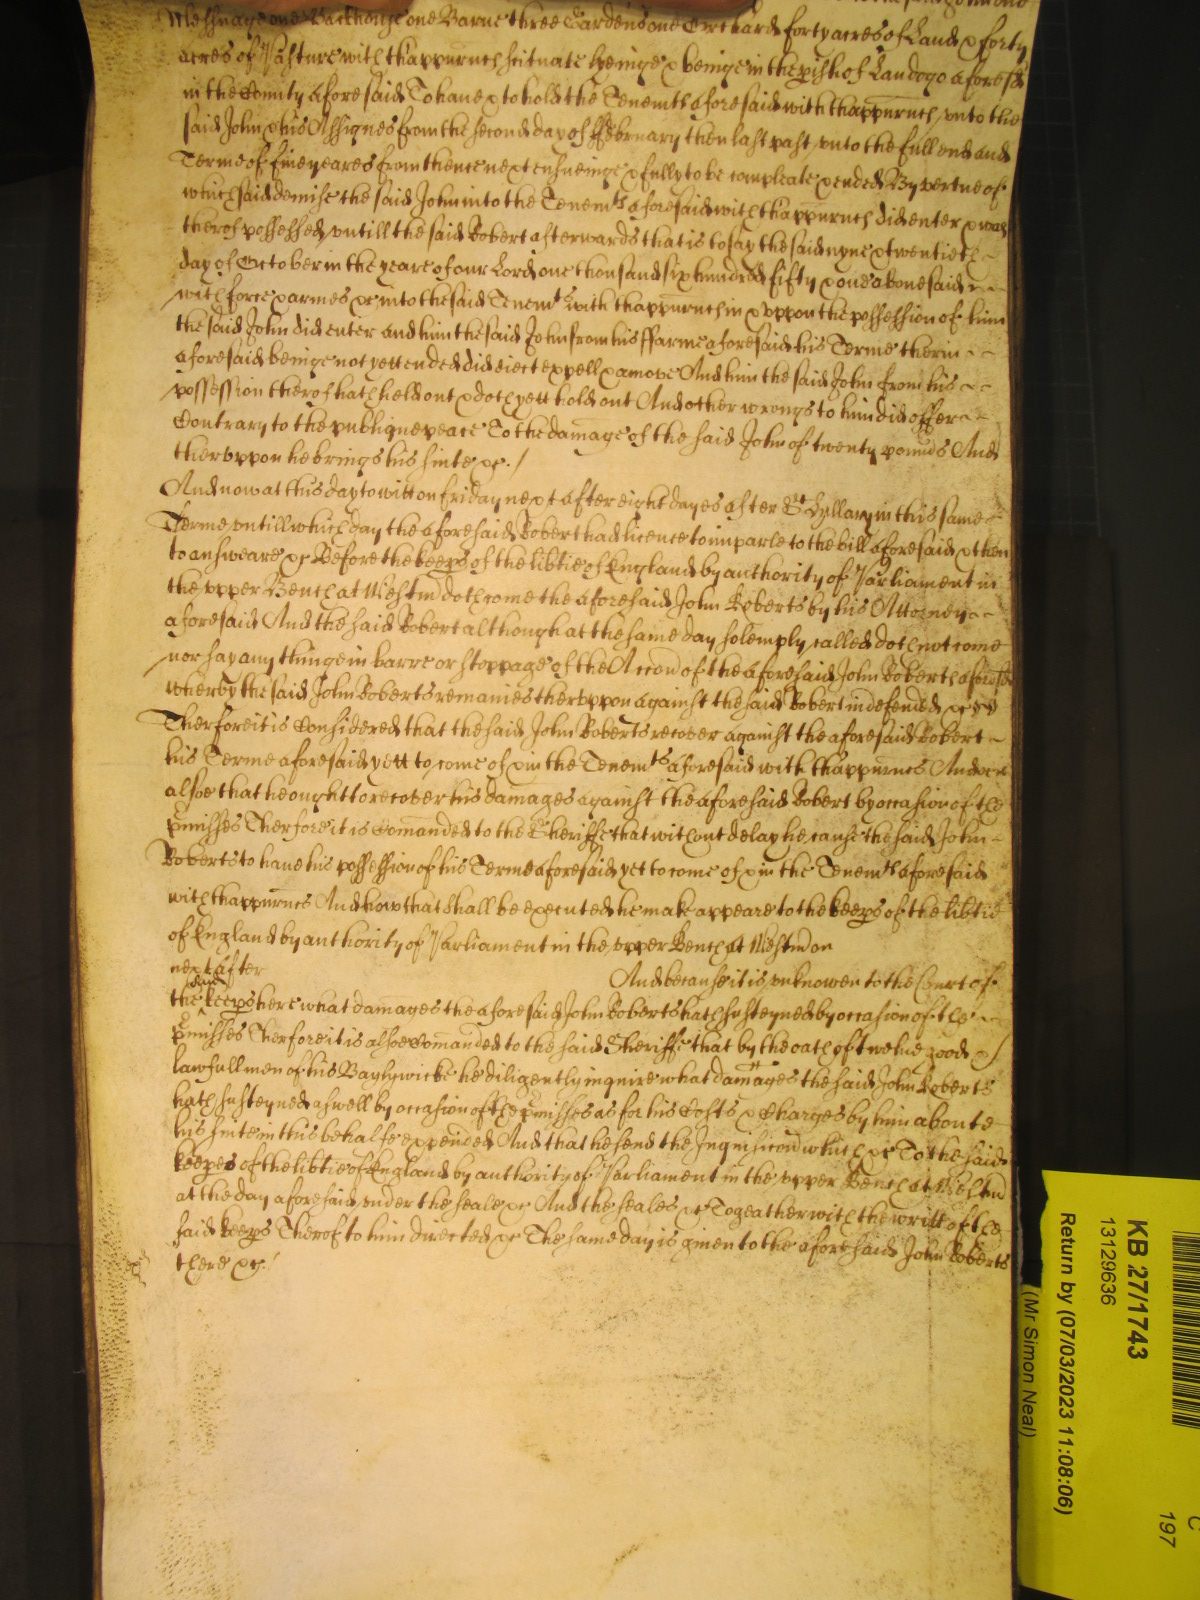 Messuage one Backhouse one Barne three Gardens one Orchard forty acres of Land & forty
acres of Pasture with thappurntn scituate lyeinge & beinge in the pish of Landogo aforesd
in the County aforesaid To have & to hold the Tenemts aforesaid with thappurntn, unto the
said John & his Assignes from the second day of ffebruary then last past, unto the full end and
Terme of five yeares from thence next ensueinge & fully to be compleate & ended By vertue of
which said demise the said John into the Tenemts aforesaid with thappurntn did enter & was
therof possessed, untill the said Robert afterwards that is to say the said nyne & twentieth
day of October in the yeare of our Lord one thousand six hundred fifty & one abovesaid
with force & armes &c into the said Tenemts with thappurntn in & uppon the possession of him
the said John did enter and him the said John from his ffarme aforesaid his Terme therin
aforesaid beinge not yett ended did eiect expell & amove And him the said John from his
possession therof hath held out & doth yett hold out And other wrongs to him did offer
Contrary to the publique peace To the damage of the said John of twenty pounds And
theruppon he brings his suite &c. /
And now at this day to witt on friday next after eight dayes after St Hyllary in this same
Terme untill which day the aforesaid Robert had licence to imparle to the bill aforesaid & then
to answeare &c Before the keeps of the libtie of England by authority of Parliament in
the upper Bench at Westm doth come the aforesaid John Roberts by his Attorney
aforesaid And the said Robert although at the same day solemply called doth not come
nor say any thinge in barre or stoppage of the Accon of the aforesaid John Roberts aforesd
wherby the said John Roberts remaines theruppon against the said Robert indefended &c
Therfore it is Considered that the said John Roberts recover against the aforesaid Robert
his Terme aforesaid yett to come of & in the Tenemts aforesaid with thappurncs And
alsoe that he ought to recover his damages against the aforesaid Robert by occasion of the
pmisses Therfore it is Comanded to the Sheriffe that without delay he cause the said John
Roberts to have his possession of his Terme aforesaid yet to come of & in the Tenemts aforesaid
with thappurncs And how that shall be executed he make appeare to the keeps of the libtie
of England by authority of Parliament in the upper Bench at Westm on
next after And because it is unknowen to the Court of
the said keeps here what damages the aforesaid John Roberts hath susteyned by occasion of the
pmisses Therfore it is alsoe Comanded to the said Sheriffe that by the oath of twelve good &
lawfull men of his Baylywicke he diligently inquire what damages the said John Roberts
hath susteyned aswell by occasion of the pmisses as for his Costs & Charges by him aboute
his suite in this behalfe expended And that he send the Inquisicon which &c To the said
keeps of the libtie of England by authority of Parliament in the upper Bench at Westm
at the day aforesaid under the seale &c And the seales &c Togeather with the writt of the
said keeps Therof to him directed &c The same day is given to the aforesaid John Roberts
there &c. /
KB 27/1743
13129636
Return by (07/03/2023 11:08:06)
(Mr Simon Neal)
197